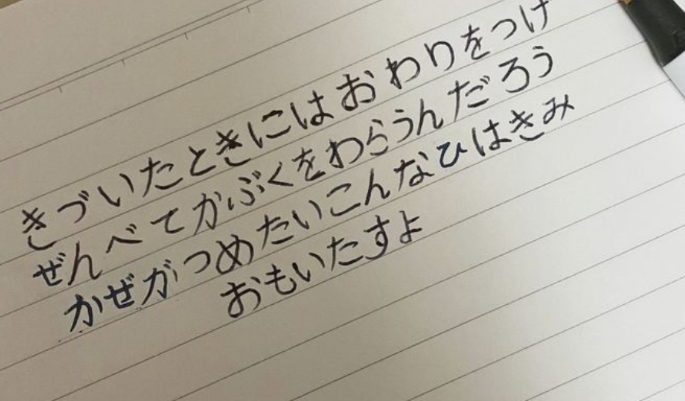 きづいたときにはおわりをつけ
ぜんべてかぶくをわらうんだろう
かぜがつめたいこんなひはきみ
おもいたすよ